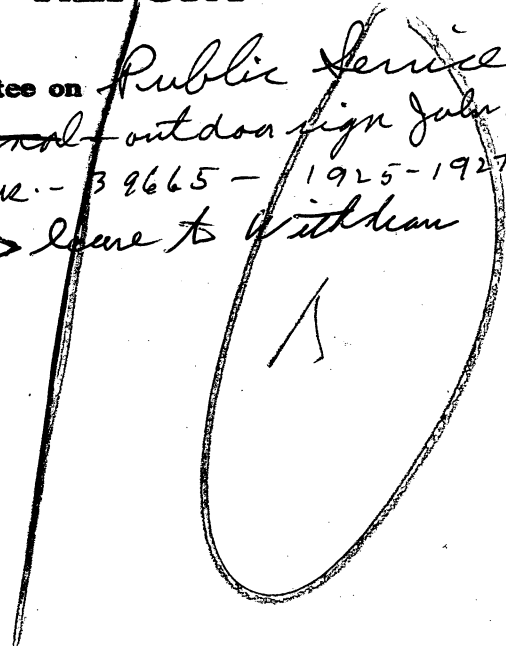 tee on Public Service
outdoor sign John
- 39665 - 1925-1927
leave to Withdraw